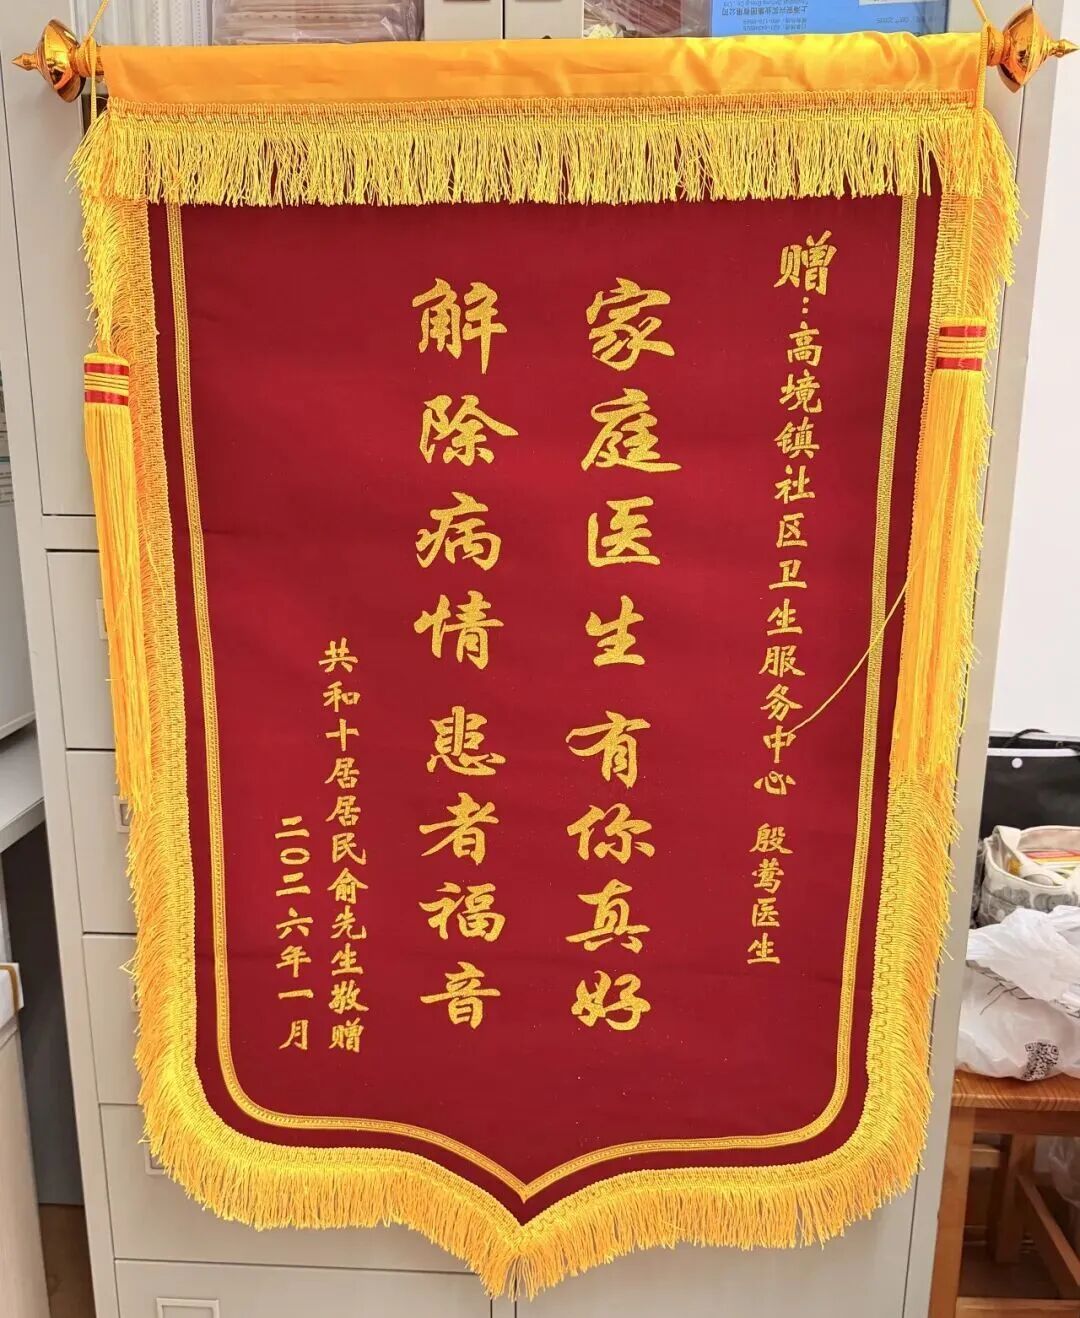 赠:高境镇社区卫生服务中心 殷莺医生
家庭医生有你真好
解除病情患者福音
共和十居居民俞先生敬赠
二〇二六年一月